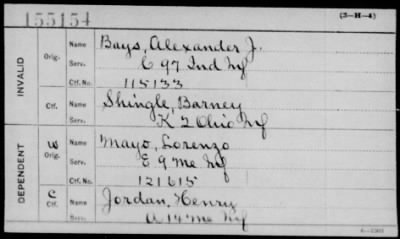 155154 (3-H-4)
INVALID
Orig. Name Bays, Alexander J.
Serv. E 97 Ind Inf
Ctf. No. 115133
Ctf. Name Shingle, Barney
Serv. K 2 Ohio Inf
DEPENDENT
W Orig. Name Mayo, Lorenzo
Serv. E 9 Me Inf
Ctf. No. 121615
C Ctf. Name Jordan, Henry
Serv. A 14 Me Inf